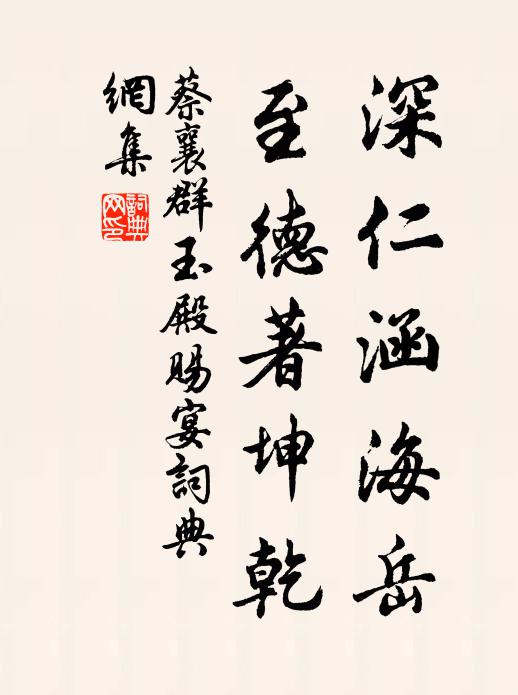 深仁涵海岳
至德著坤乾
蔡襄群玉殿賜宴詞典
網集
詞典網印